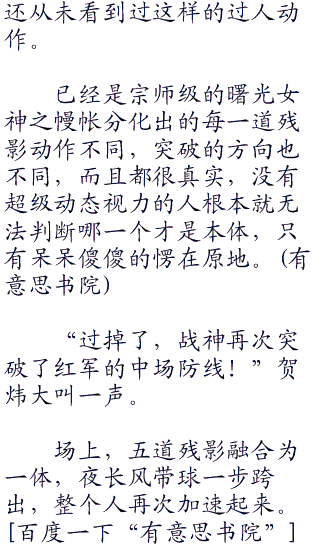 还从未看到过这样的过人动
作。
已经是宗师级的曙光女
神之幔帐分化出的每一道残
影动作不同，突破的方向也
不同，而且都很真实，没有
超级动态视力的人根本就无
法判断哪一个才是本体，只
有呆呆傻傻的愣在原地。(有
意思书院)
“过掉了，战神再次突
破了红军的中场防线！”贺
炜大叫一声。
场上，五道残影融合为
一体，夜长风带球一步跨
出，整个人再次加速起来。
[百度一下“有意思书院”]